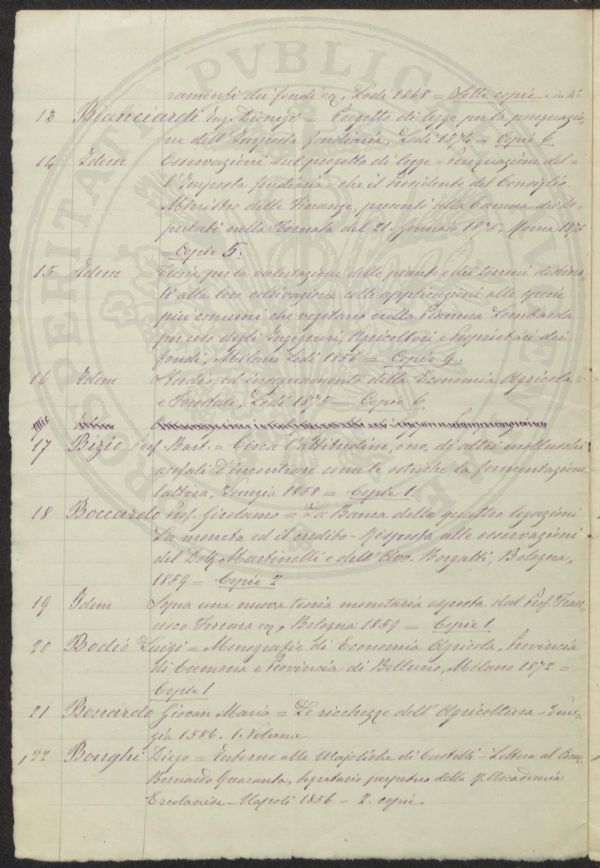 ramenti dei fondi ecc, Lodi 1868 = Sette copie - in 4°
13 Bianciardi Ing. Dionigi = Progetto di legge per la perequazio-
ne dell'Imposta fondiaria, Lodi 1874 = Copie 6
14 Idem Osservazioni sul progetto di legge = Perequazione del-
l'Imposta fondiaria = che il Presidente del Consiglio
Ministro delle Finanze, presentò alla Camera dei De-
putati nella Tornata del 21. Gennaio 1875. Roma 1875
= Copie 5.
15 Idem Teoria per la valutazione delle piante e dei terreni destina-
ti alla loro coltivazione colle applicazioni alle specie
più comuni che vegetano nella Pianura Lombarda
per uso degli Ingegneri, Agricoltori e Proprietari dei
fondi, Milano Lodi 1856 = Copie 9.
16 Idem ed insegnamento della Economia Agricola
e Forestale, Lodi 1875 = Copie 6
17 Bizio Prof. Bart. = Circa l'attitudine, o no, di altri molluschi
acefali d'incontrare come le ostriche la fermentazione
lattica, Venezia 1868 = Copie 1.
18 Boccardo Prof. Girolamo = La Banca delle quattro legazioni
La moneta ed il credito - Risposta alle osservazioni
del Dott. Martinelli e dell'Avv. Borgatti, Bologna,
1859 = Copie 2
19 Idem Sopra una nuova teoria monetaria esposta dal Prof. Fran-
cesco Ferrara ecc, Bologna 1859 = Copie 1
20 Bodio Luigi = Monografie di Economia Agricola, Provincia
di Cremona e Provincia di Belluno, Milano 1872 =
Copie 1
21 Bonardo Giovan Maria = Le ricchezze dell'Agricoltura - Vene-
zia 1586. 1. Volume
22 Bonghi Diego = Intorno alle Majoliche di Castelli - Lettera al Comm.
Bernardo Quaranta, Segretario perpetuo della R. Accademia
Ercolanese - Napoli 1856 - 2. copie.